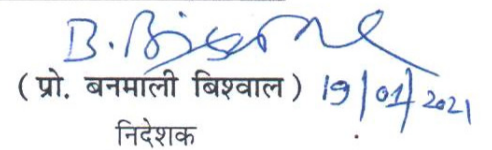 B. Biswal
( प्रो. बनमाली बिश्वाल ) 19/01/2021
निदेशक